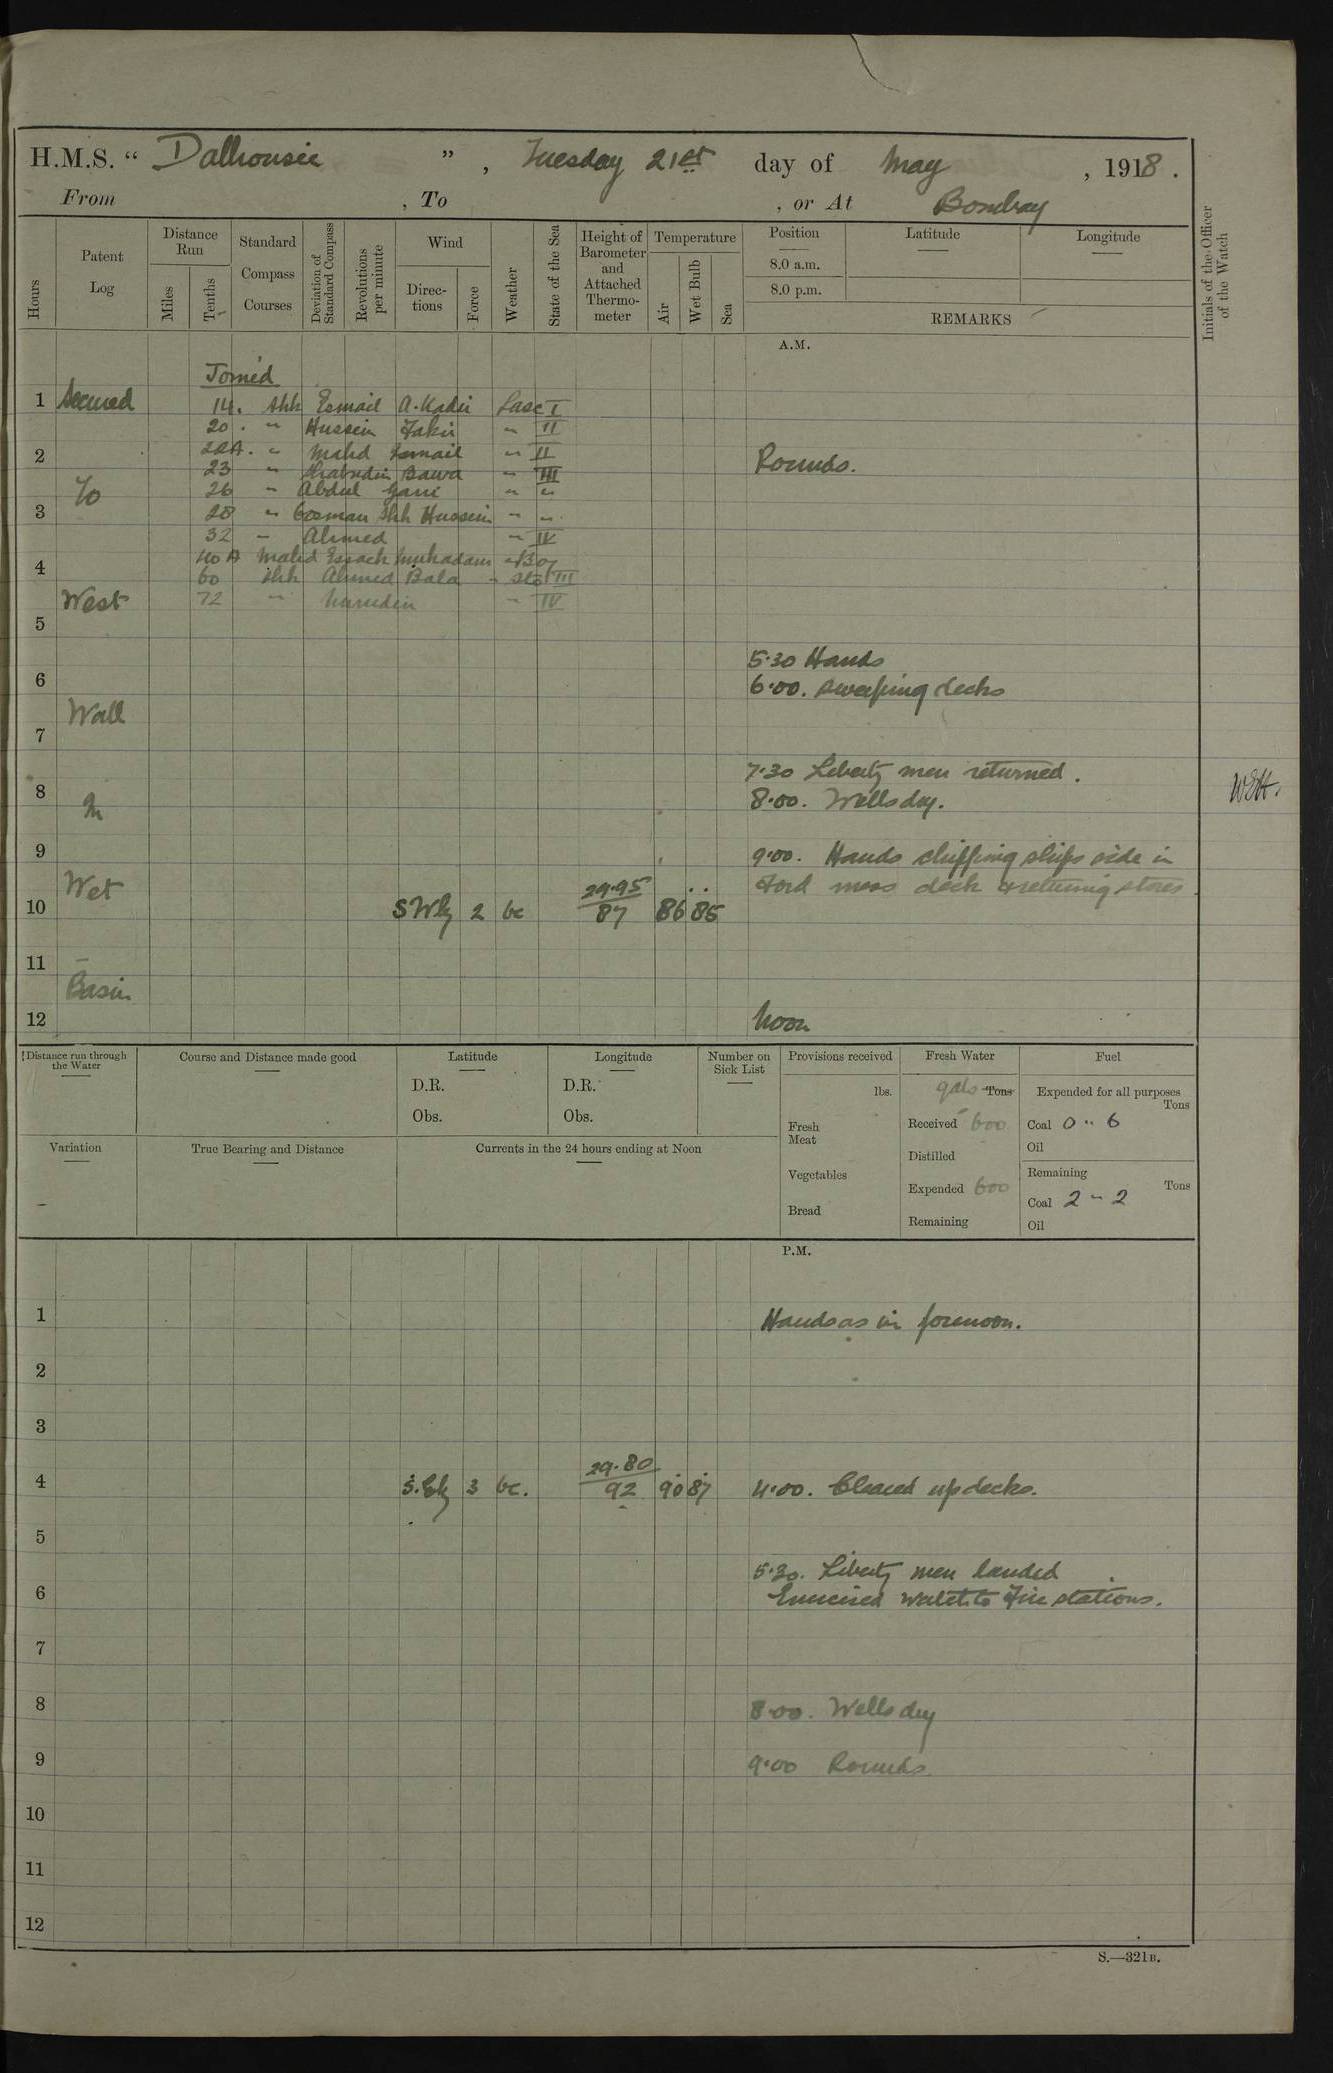 H.M.S. " Dalhousie ", Tuesday 21st day of May, 1918.
From , To , or At Bombay
Hours
Patent Log
Distance Run
Miles
Tenths
Standard Compass Courses
Deviation of Standard Compass
Revolutions per minute
Wind
Directions
Force
Weather
State of the Sea
Height of Barometer and Attached Thermometer
Temperature
Air
Wet Bulb
Sea
Position
8.0 a.m.
8.0 p.m.
Latitude
Longitude
REMARKS
Initials of the Officer of the Watch
A.M.
Joined
1 Secured 14. Shk Esmail A. Kadir Lasc I
20. " Hussein Fakir " II
2 22A. " Mahd Esmail " II Rounds.
23 " Bawa " III
To 26 " Abdul Gani " "
3 28 " Oosman Shk Hussein " "
32 " Ahmed " IV
4 40 A Mahd Essack Mukadam " Boy
60 Shk Ahmed Bala " Sto III
West 72 " Nurudin " IV
5
5.30 Hands
6 6.00. Sweeping decks
Wall
7
7.30 Liberty men returned.
8 In 8.00. Wells dry. WSH.
9 9.00. Hands chipping ships side in
Wet 29.95 Ford mess deck & returning stores
10 SWly 2 bc 87 86 85
11
Basin
12 Noon
Distance run through the Water
Course and Distance made good
Latitude
D.R.
Obs.
Longitude
D.R.
Obs.
Number on Sick List
Provisions received
lbs.
Fresh Meat
Vegetables
Bread
Fresh Water
gals Tons
Received 600
Distilled
Expended 600
Remaining
Fuel
Expended for all purposes
Tons
Coal 0 " 6
Oil
Remaining
Tons
Coal 2 " 2
Oil
Variation
True Bearing and Distance
Currents in the 24 hours ending at Noon
P.M.
1 Hands as in forenoon.
2
3
29.80
4 S.Ely 3 bc. 92 90 87 4.00. Cleared up decks.
5
5.30. Liberty men landed
6 Exercised watch to Fire stations.
7
8 8.00. Wells dry
9 9.00 Rounds
10
11
12
S.—321B.